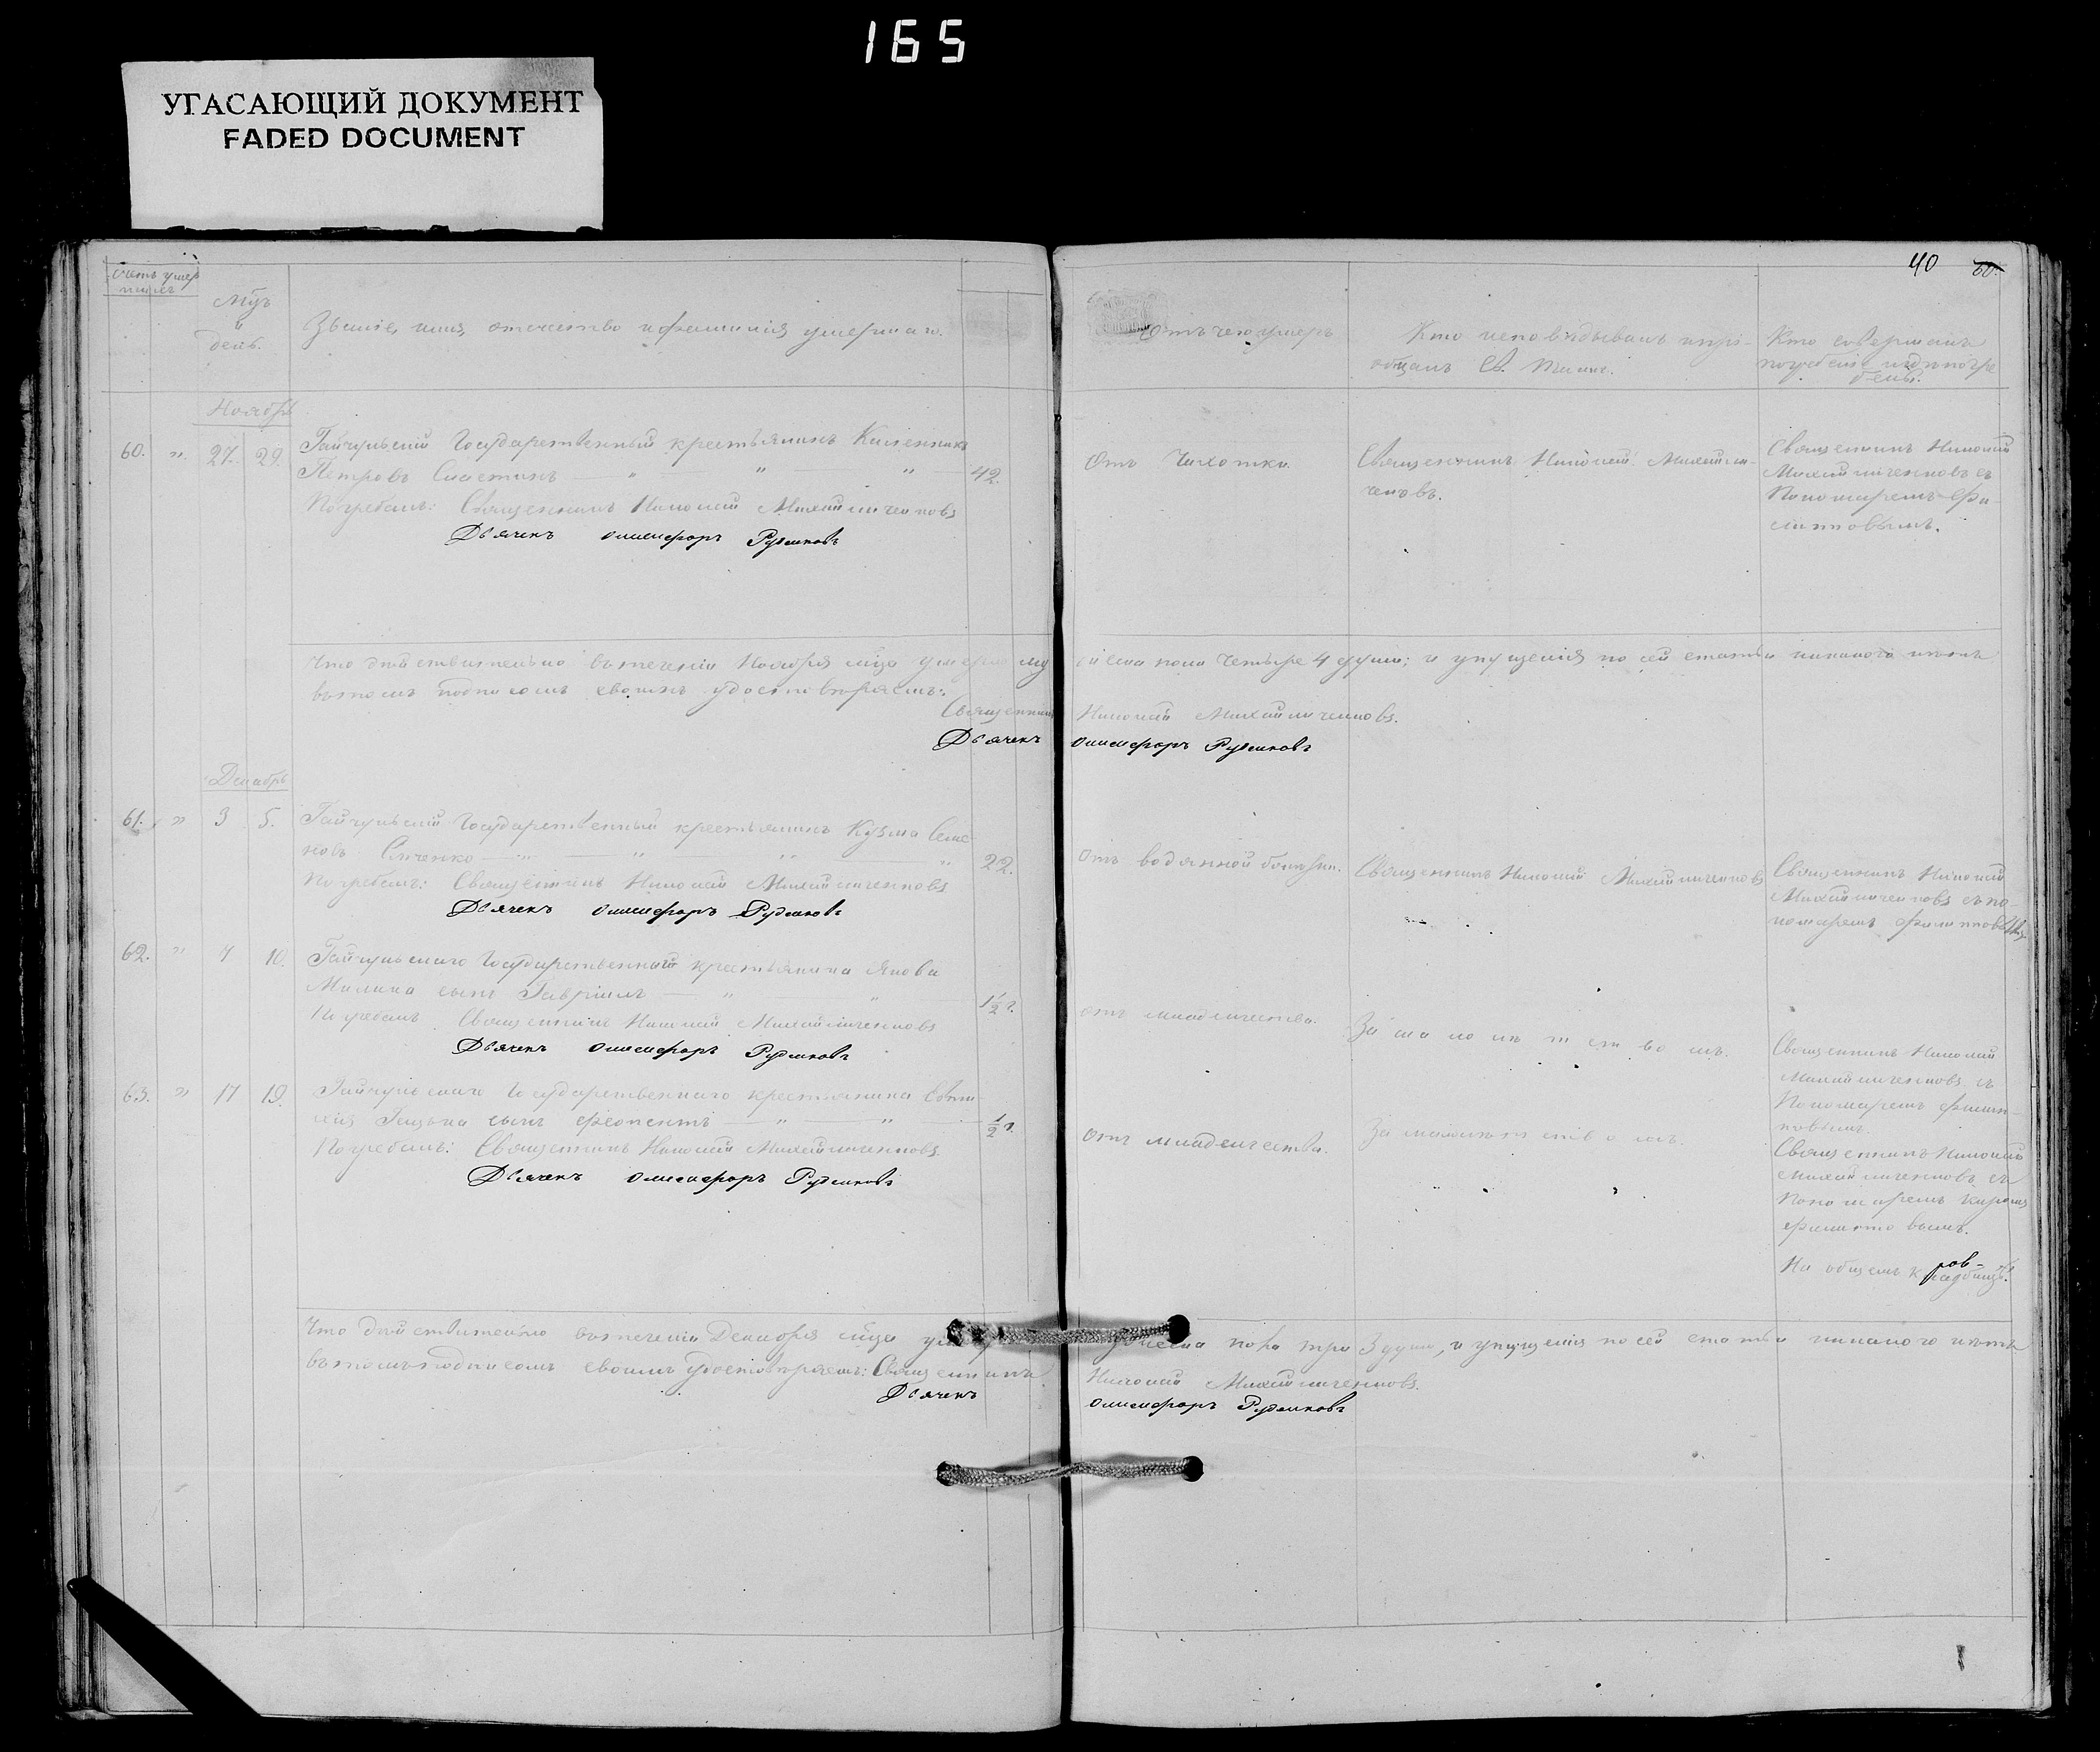 165
УГАСАЮЩИЙ ДОКУМЕНТ
FADED DOCUMENT
40
Мцъ
и
день.
Званіе, имя, отечество и фамилія умершаго.
Отъ чего умеръ
Кто исповѣдывалъ и прі-
общалъ Св. Тайнъ.
Кто совершалъ
погребеніе и гдѣ погре
бены.
Ноябрь
60. " 27. 29. Гайчульскій Государственный крестьянинъ
Петровъ " " " 42.
Погребалъ: Священникъ Николай Михайличенковъ
Дьячекъ Онисифоръ Рудниковъ
Отъ Чахотки.
Священникъ Николай Михайли-
ченковъ.
Священникъ Николай
Михайличенковъ съ
Пономаремъ Фи-
липповымъ.
Что дѣйствительно въ теченіи Ноября мца умерло му
жеска пола четыре 4 души; и упущенія по сей статьи никакого нѣтъ
въ томъ подписомъ своимъ удостовѣряемъ:
Священникъ Николай Михайличенковъ.
Дьячекъ Онисифоръ Рудниковъ
Декабрь
61. " 3 5. Гайчульскій Государственный крестьянинъ Кузма Семе
новъ " " " " 22.
Погребалъ: Священникъ Николай Михайличенковъ
Дьячекъ Онисифоръ Рудниковъ
Отъ водянной болѣзни.
Священникъ Николай Михайличенковъ
Священникъ Николай
Михайличенковъ съ по-
номаремъ Филипповым
62. " 7 10. Гайчульскаго Государственнаго крестьянина Якова
сынъ Гавріилъ " " 1½ г.
Погребалъ Священникъ Николай Михайличенковъ
Дьячекъ Онисифоръ Рудниковъ
отъ младенчества.
За малолѣтствомъ.
Священникъ Николай
Михайличенковъ съ
Пономаремъ Филип-
повымъ.
63. " 17 19. Гайчульскаго Государственнаго крестьянина
сынъ " " ½ г.
Погребалъ: Священникъ Николай Михайличенковъ.
Дьячекъ Онисифоръ Рудниковъ
Отъ младенчества.
За малолѣтствомъ.
Священникъ Николай
Михайличенковъ съ
Пономаремъ
Филипповымъ.
На общемъ кладбищѣ.
Что дѣйствительно въ теченіи Декабря мца
пола три 3 души, и упущенія по сей статьи никакого нѣтъ
въ томъ подписомъ своимъ удостовѣряемъ: Священникъ
Николай Михайличенковъ.
Дьячекъ Онисифоръ Рудниковъ